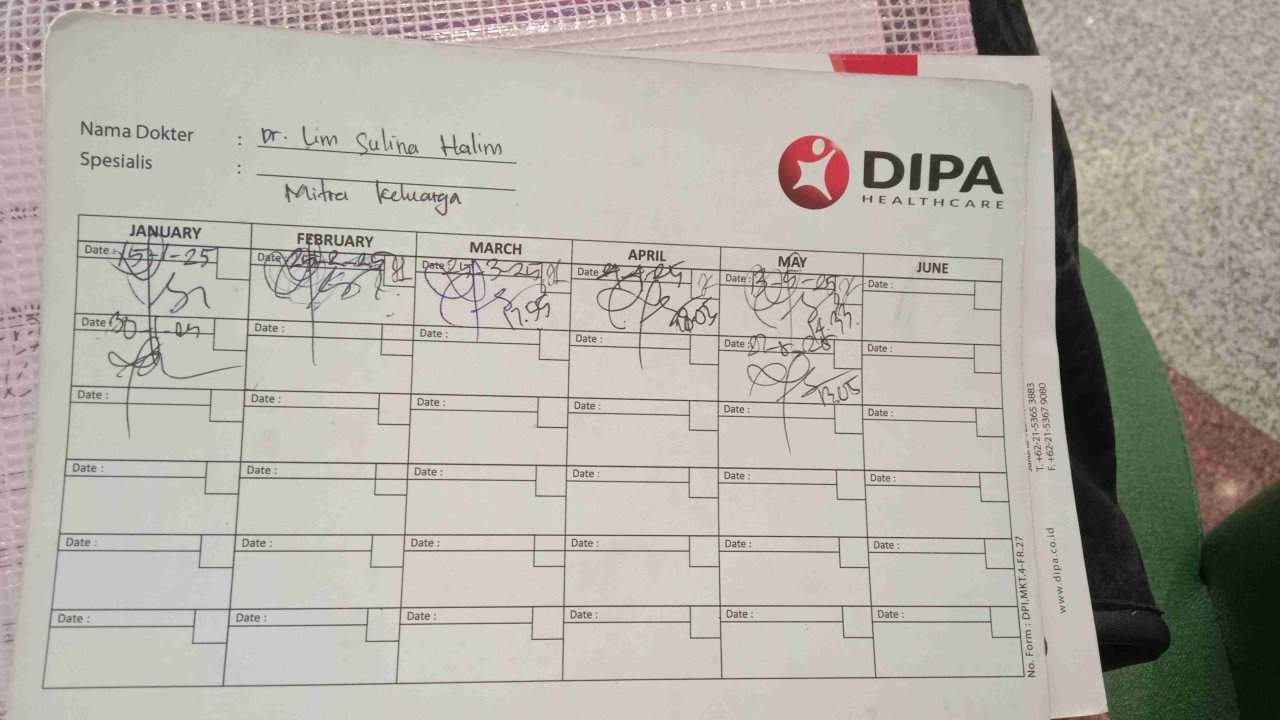 Nama Dokter : Dr. Lim Sulina Halim
Spesialis :
Mitra Keluarga
DIPA
HEALTHCARE
JANUARY FEBRUARY MARCH APRIL MAY JUNE
Date : 15-1-25 Date : Date : 25-3-25 Date : Date : 13-5-25 Date :
Date : 30-1-25 Date : Date : Date : Date :
13.05
Date : Date : Date : Date : Date : Date :
Date : Date : Date : Date : Date : Date :
Date : Date : Date : Date : Date : Date :
Date : Date : Date : Date : Date : Date :
T. +62-21-5365 3883
F. +62-21-5367 9080
www.dipa.co.id
No. Form : DPI.MKT.4-FR.27